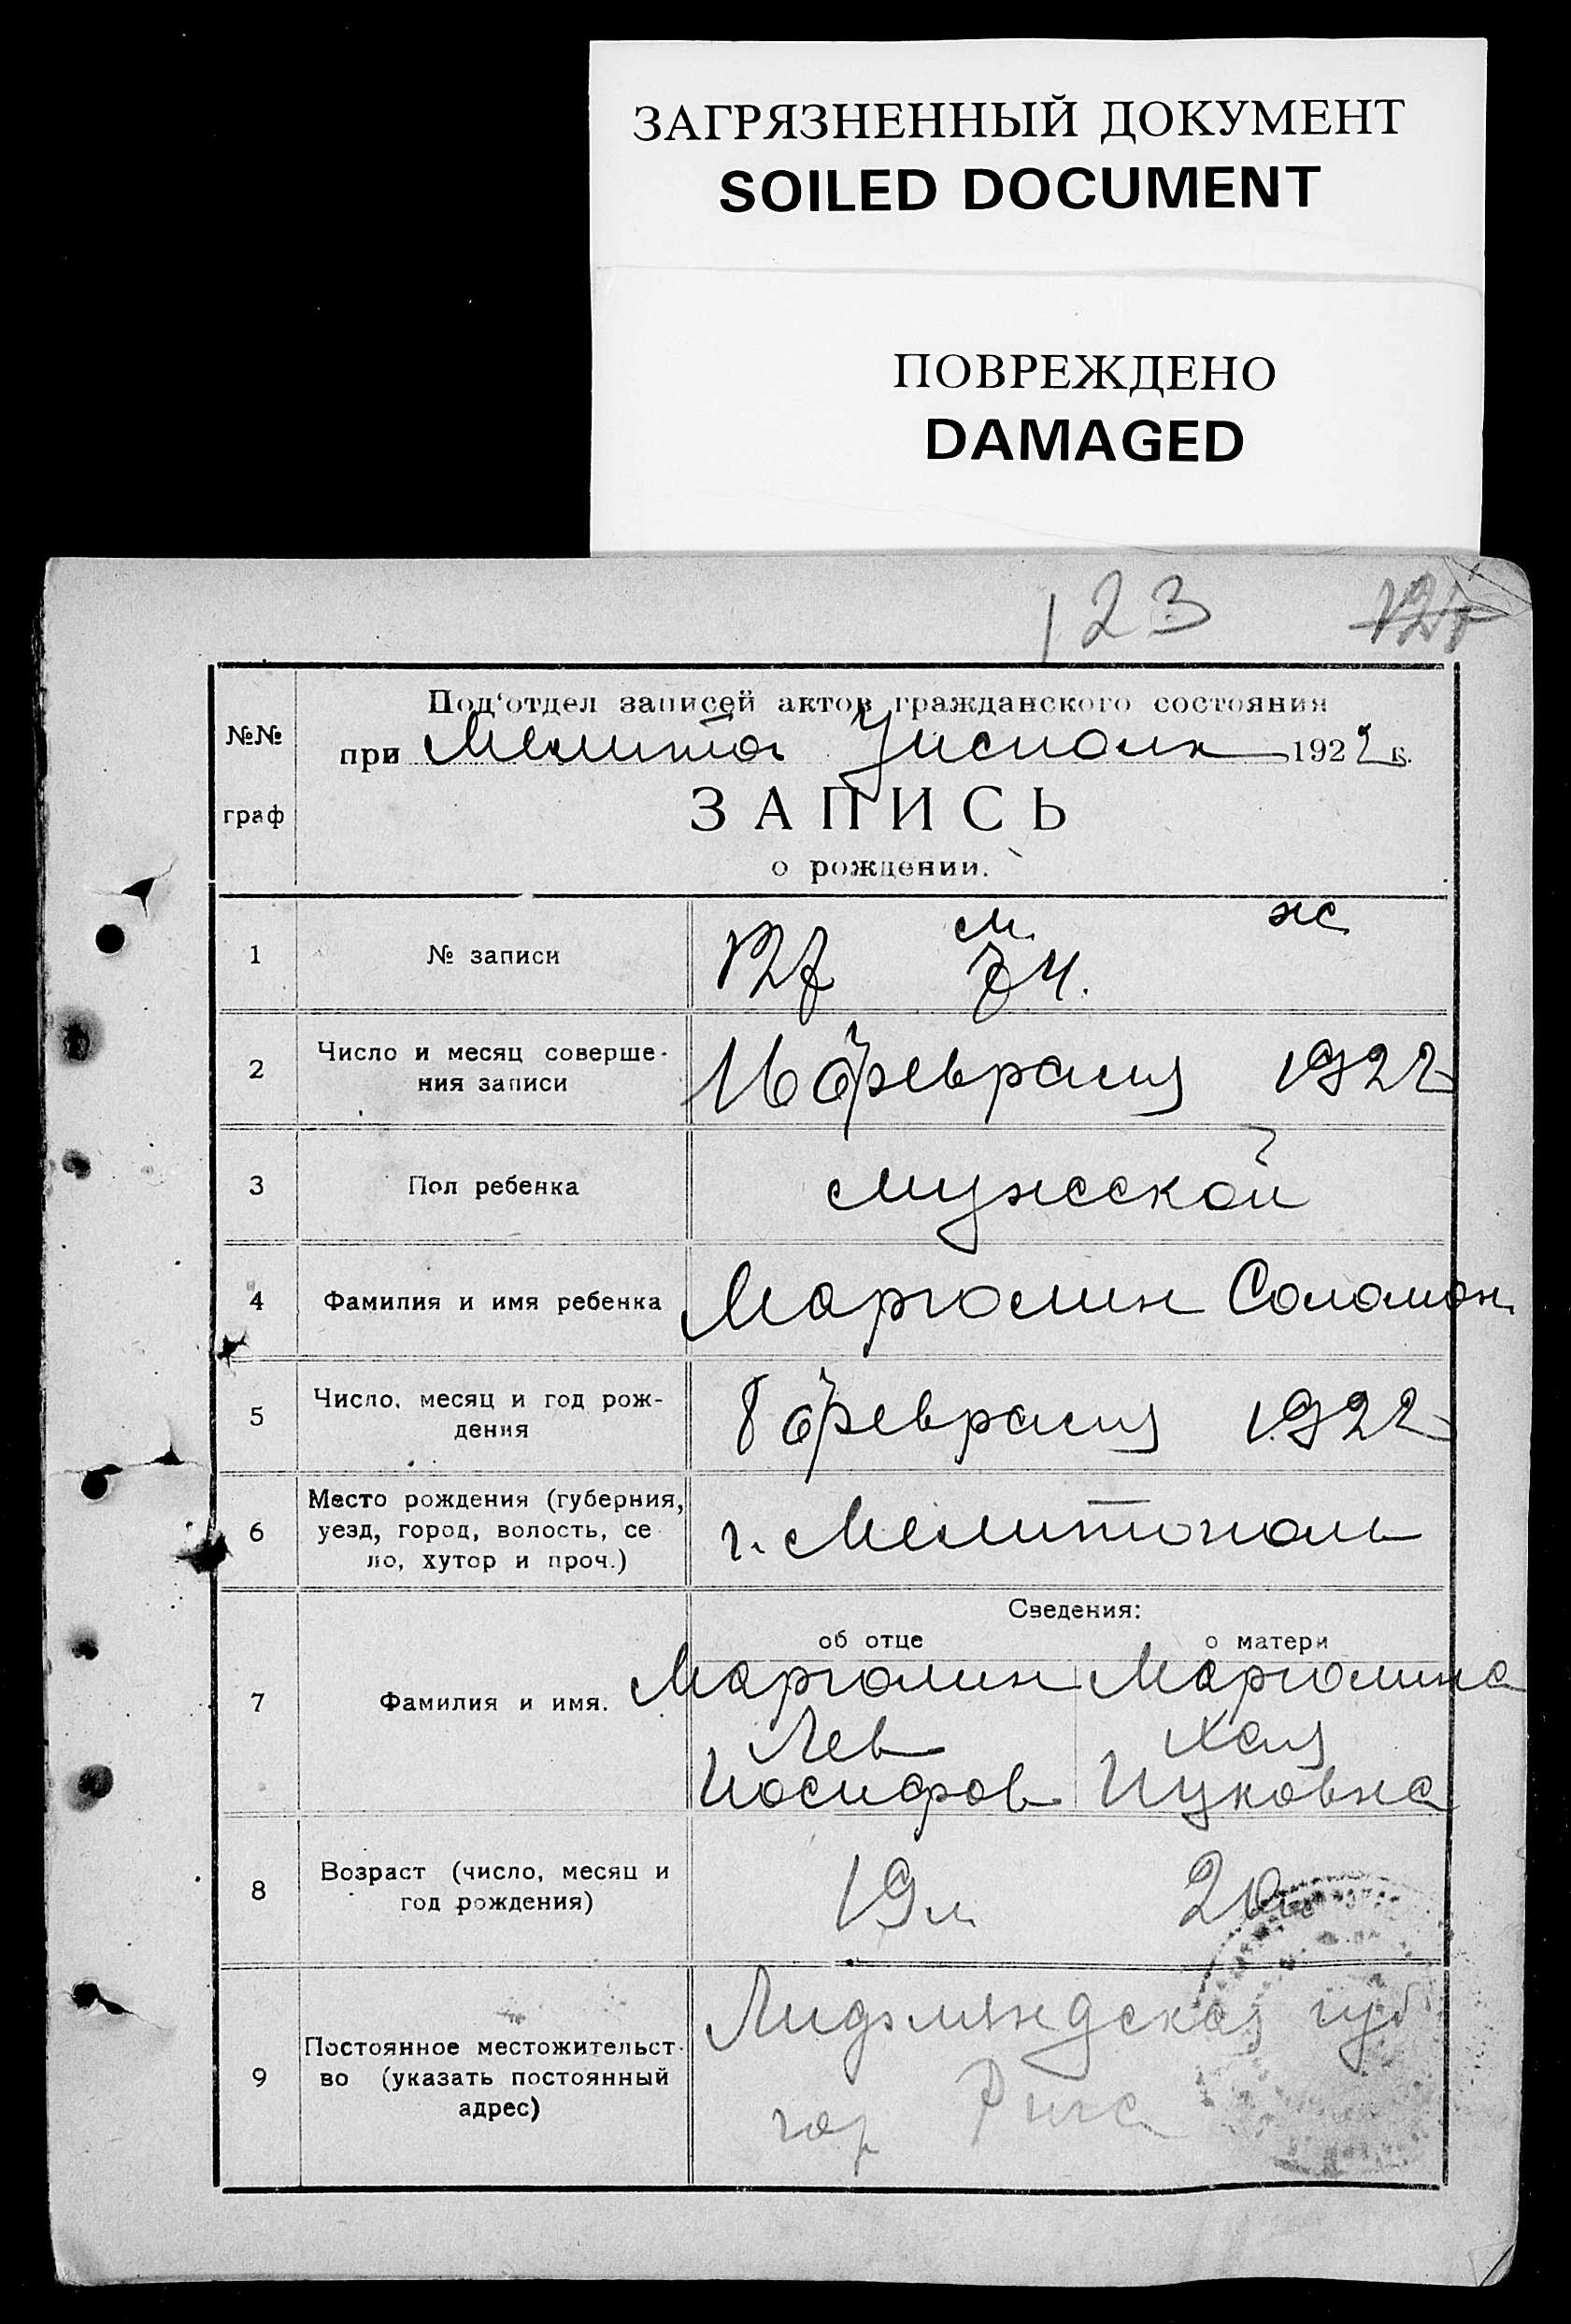 ЗАГРЯЗНЕННЫЙ ДОКУМЕНТ
SOILED DOCUMENT
ПОВРЕЖДЕНО
DAMAGED
123 127
Под‘отдел записей актов гражданского состояния
№№
при Мелитоп Уисполк 1922 г.
граф
ЗАПИСЬ
о рождении.
м. ж
1 № записи 127 74.
2 Число и месяц соверше-
ния записи
16 февраля 1922
3 Пол ребенка мужской
4 Фамилия и имя ребенка Марголин Соломон
5 Число, месяц и год рож-
дения
8 февраля 1922
6 Место рождения (губерния,
уезд, город, волость, се
ло, хутор и проч.)
г. Мелитополь
Сведения:
об отце о матери
7 Фамилия и имя. Марголин Марголина
Лев Хая
Иосифов Ицковна
8 Возраст (число, месяц и
год рождения)
19 л 20
9 Постоянное местожительст-
во (указать постоянный
адрес)
губ
гор Рига